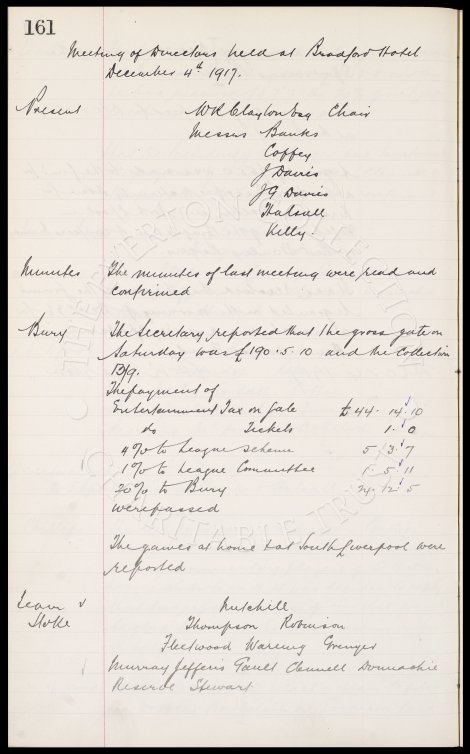 161
Meeting of Directors held at Bradford Hotel
December 4th 1917.
Present W R Clayton Esq Chair
Messrs Banks
Coffey
J Davies
J G Davies
Halsall
Kelly.
Minutes The minutes of last meeting were read and
confirmed
Bury The Secretary reported that the gross gate on
Saturday was £190.5.10 and the Collection
13/9.
The payment of
Entertainment Tax on Gate £44.14.10
do Tickets 1.0
4% to League scheme 5.3.7
1% to League Committee 1.5.11
20% to Bury 24.12.5
were passed
The games at home & at South Liverpool were
reported
Team v Mitchell
Stoke Thompson Robinson
Fleetwood Wareing Grenyer
Murray Jefferis Gault Clennell Donnachie
Reserve Stewart
THE EVERTON COLLECTION
CHARITABLE TRUST